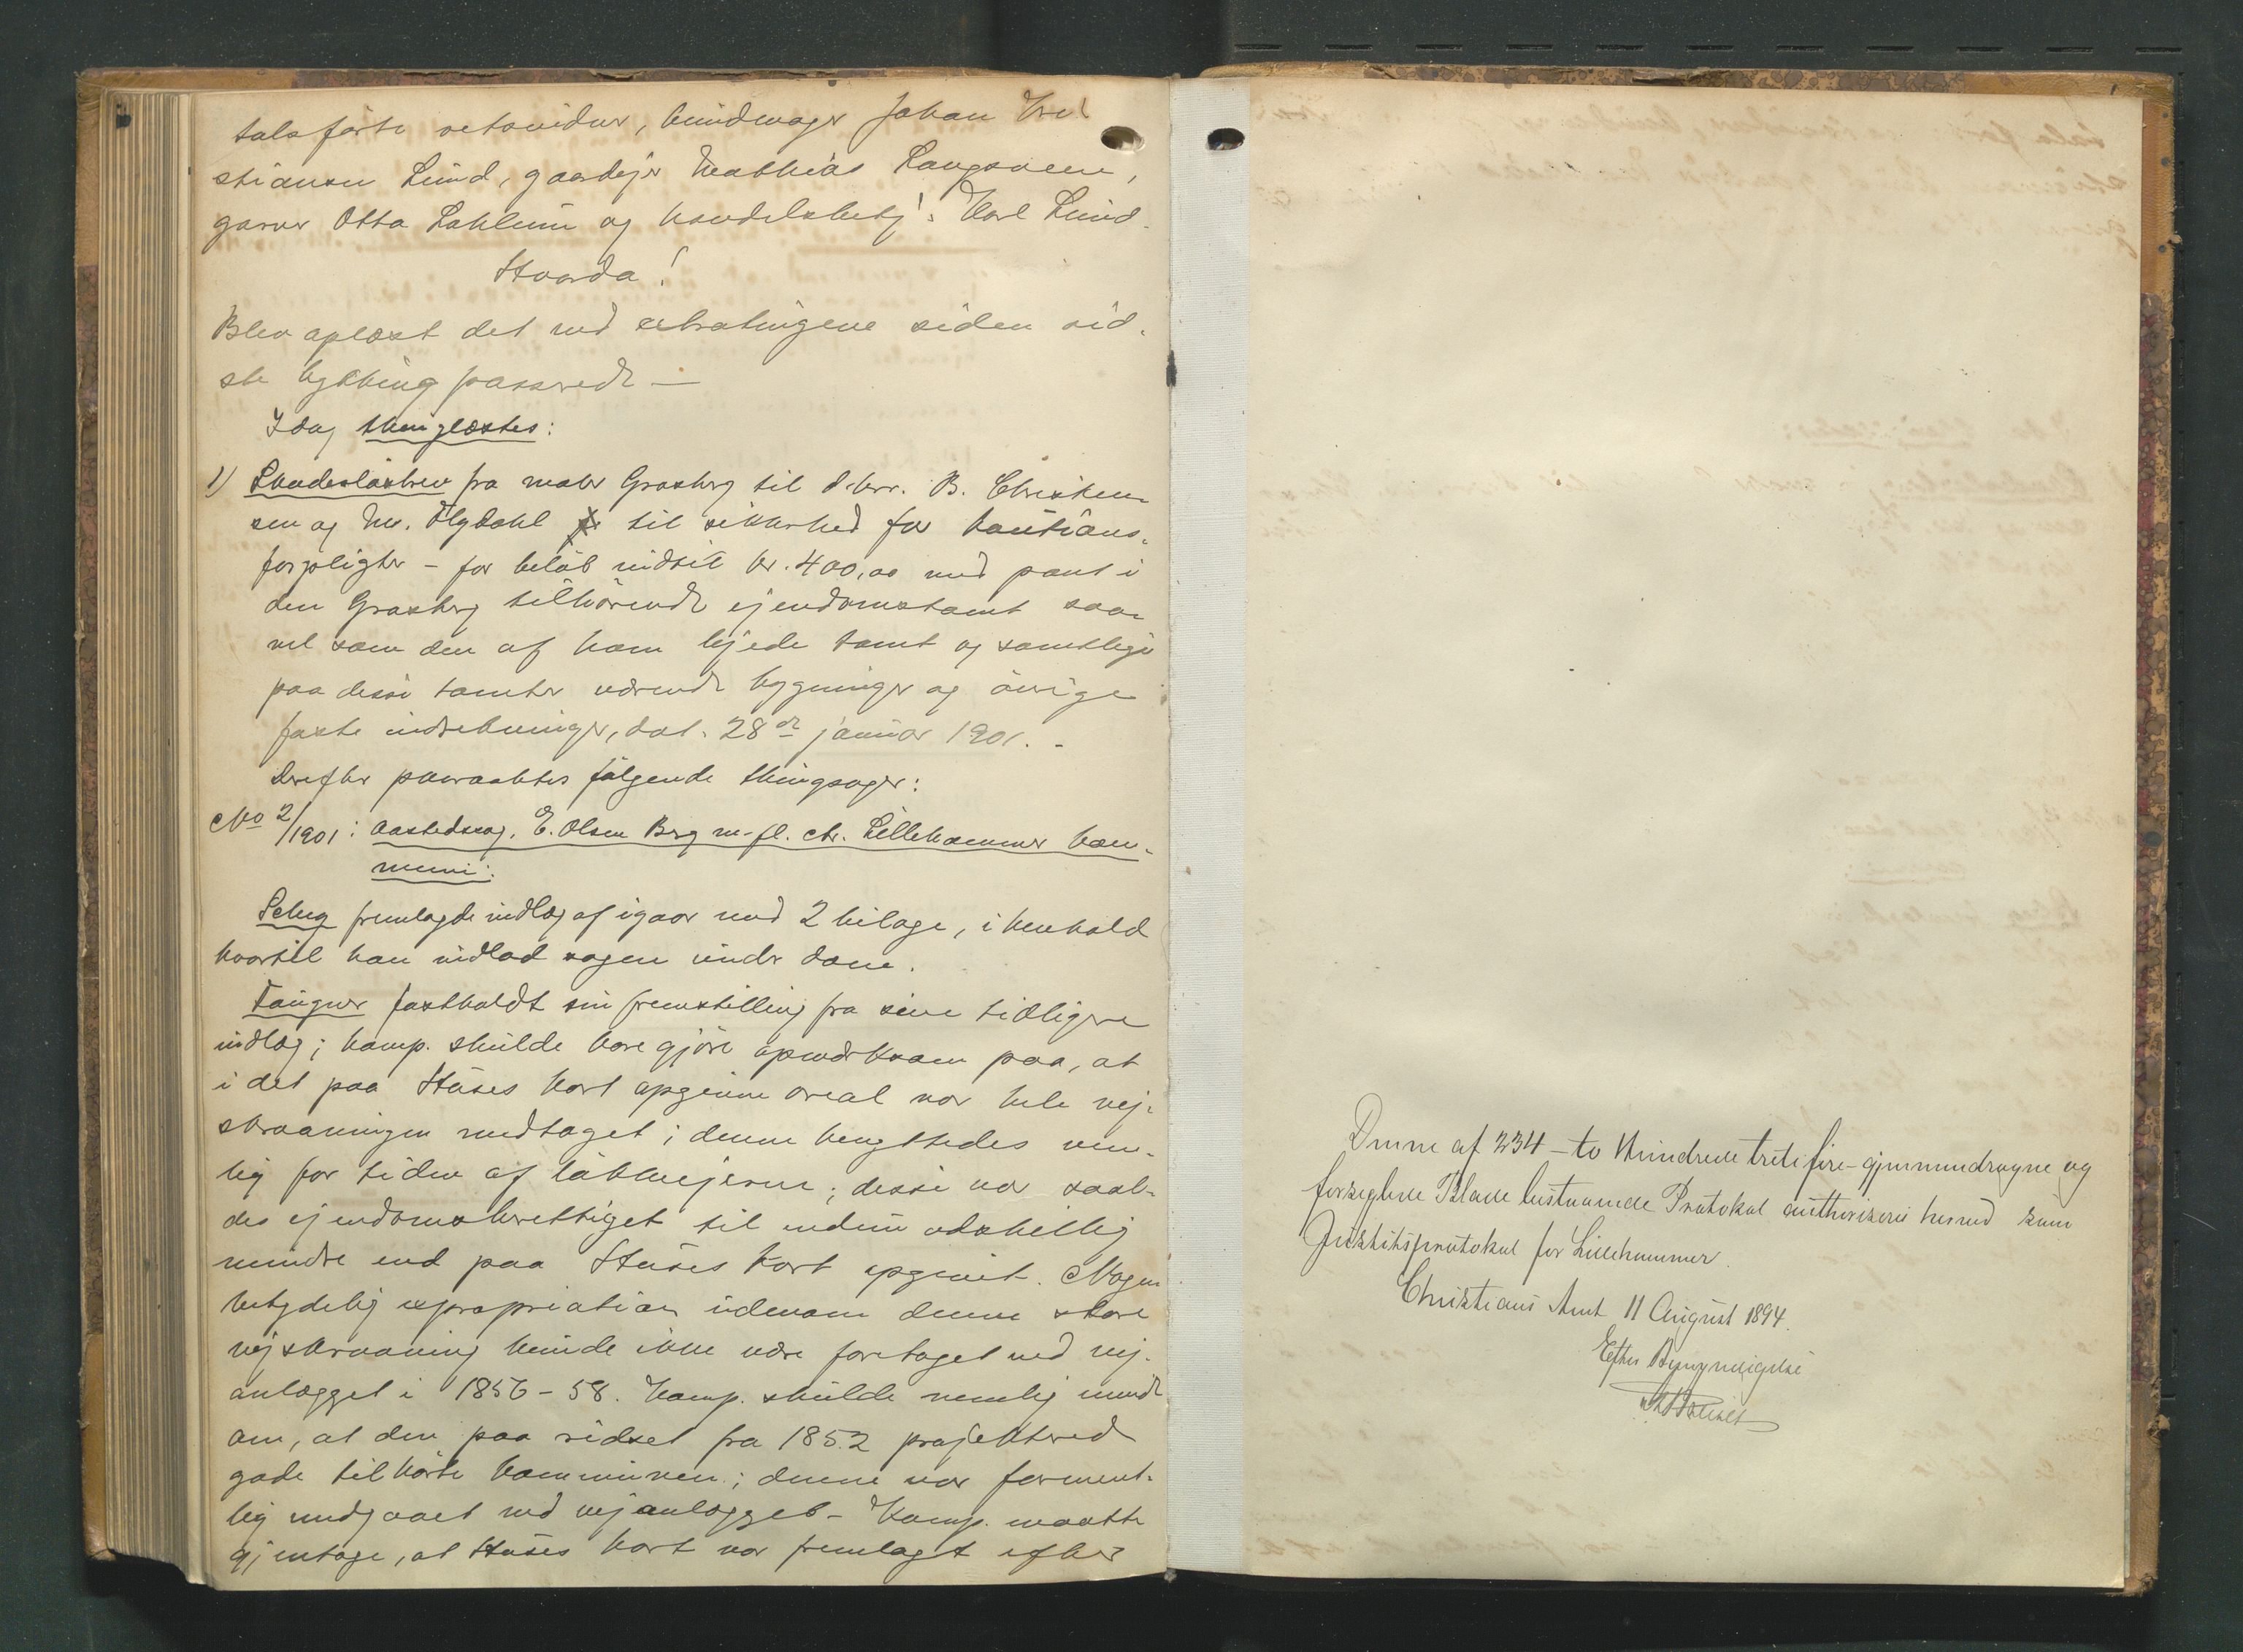 talsførte retsvidner, bundmager Johan Kri
stiansen Lund, gaardejer Mathias Langsveen,
garver Otto Lahlum og handelsbetj: Karl Lund.
Hvorda!
Blev oplæst det ved extratingene siden sid-
ste bything passerede —
Idag thinglæstes:
1) Skadesløsbrev fra maler Grosberg til d.hrr. B. Christen
sen og M. Ølgdahl til sikkerhed for kautions-
forpligter - for beløb indtil kr. 400,00 med pant i
den Grosberg tilhørende ejendomstomt saa-
vel som den af ham lejede tomt og samtlige
paa disse tomter værende bygninger og øvrige
faste indretninger, dat. 28de januar 1901. -
Derefter paaraabtes følgende thingsager:
No 2/1901: Aastedssag, E. Olsen Berg m.fl. ctr. Lillehammer kom-
mune:
Scheg fremlagde indlæg af igaar med 2 bilage, i henhold
hvortil han indlod sagen under dom.
Tangner fastholdt sin fremstilling fra sine tidligere
indlæg; komp. skulde bare gjøre opmærksom paa, at
i det paa Huses kart opgivne areal var hele vej-
skraaningen medtaget; denne benyttedes nem-
lig for tiden af løkkeejerne; disse var saale-
des ejendomsberettiget til endnu adskillig
mindre end paa Huses kart opgivet. Nogen
betydelig expropriation udenom denne store
vejskraaning kunde ikke være foretaget ved vej-
anlægget i 1856-58. Komp. skulde nemlig minde
om, at den paa ridset fra 1852 projekterede
gade tilhørte kommunen; denne var forment-
lig medgaaet ved vejanlægget - Komp. maatte
gjentage, at Huses kart var fremlagt efter
Denne af 234 - to Hundrede treti fire - gjennemdragne og
forseglede Blade bestaaende Protokol authoriseres herved som
Justitsprotokol for Lillehammer.
Christians Amt 11 August 1894.
Efter Bemyndigelse